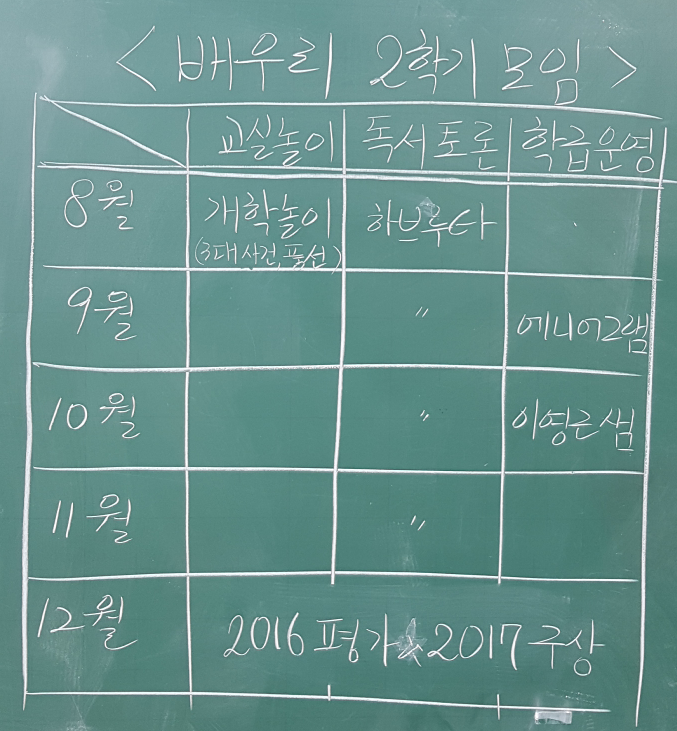 <배우리 2학기 모임>
교실놀이 독서토론 학급운영
8월 개학놀이 하브루타 .
(3대사건,풍선)
9월 〃 에니어그램
10월 〃 이영근샘
11월 〃
12월 2016 평가 & 2017 구상